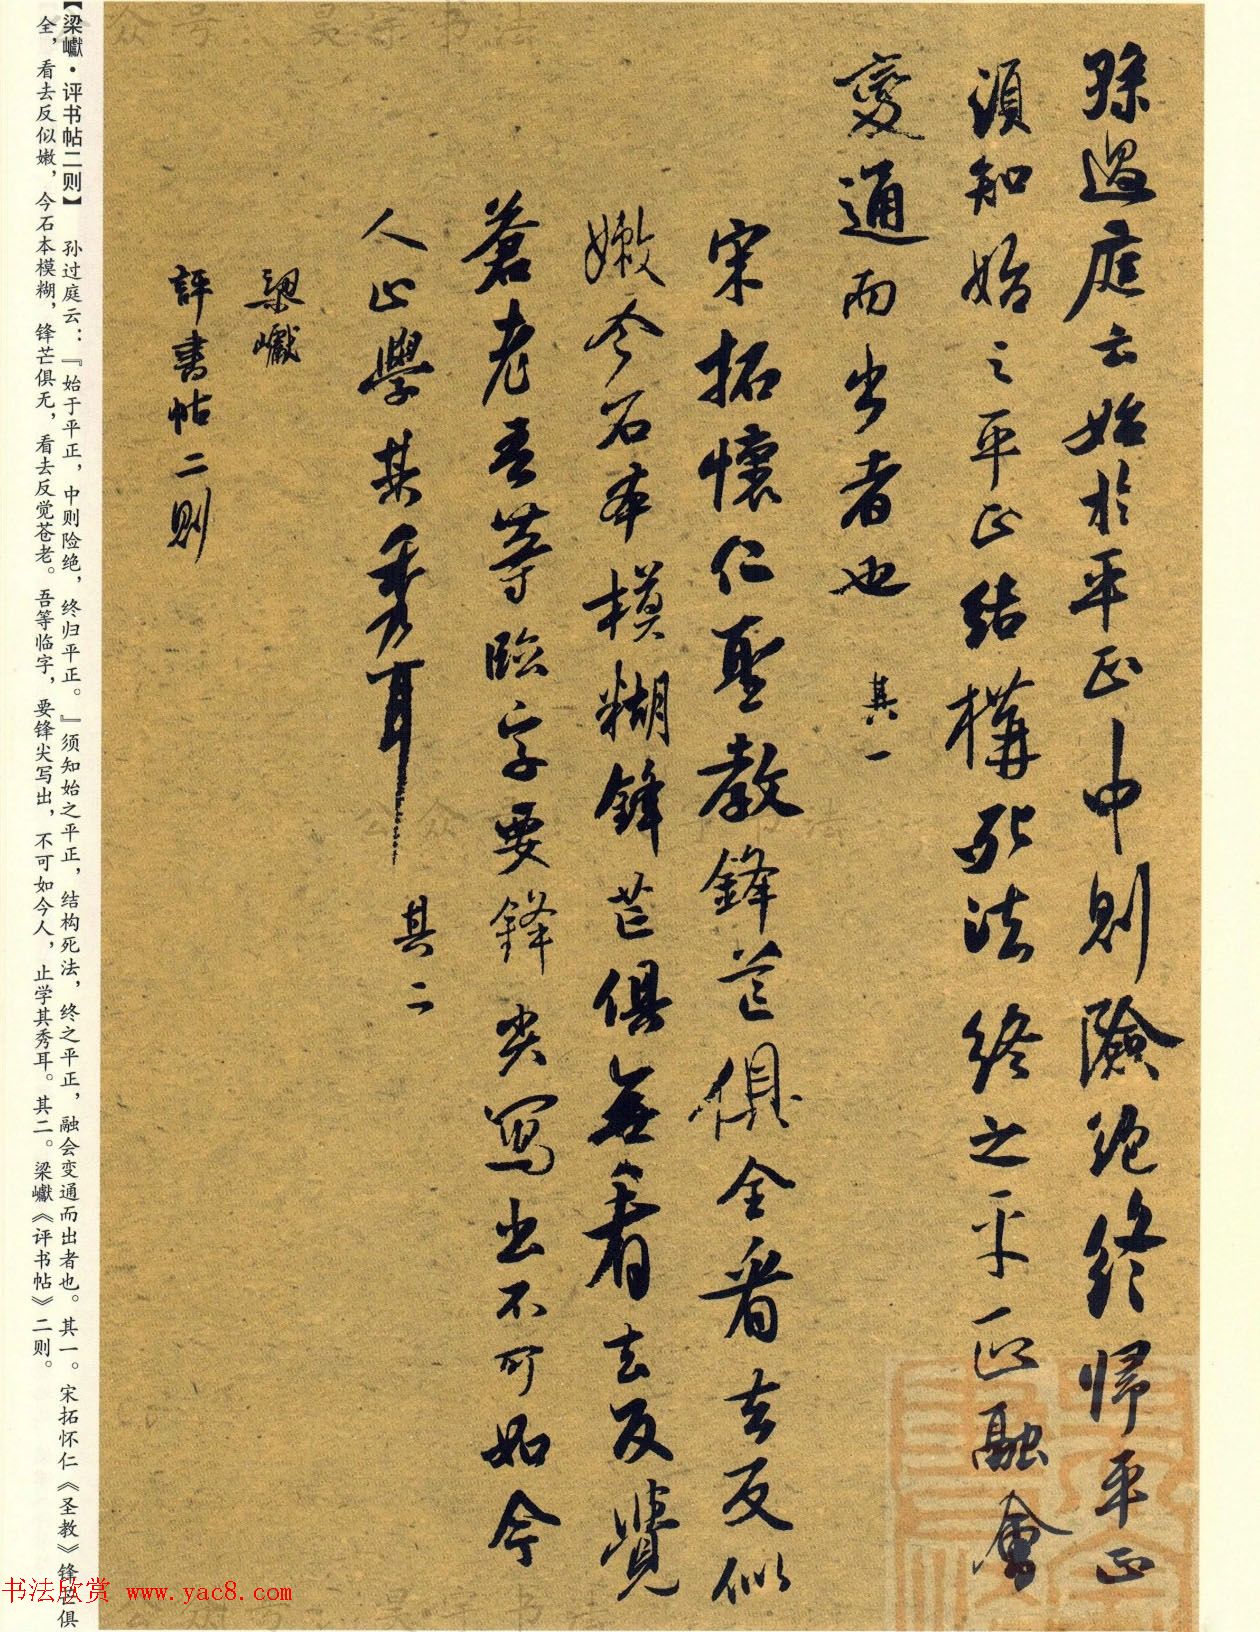 孫過庭云始於平正中則險絕終歸平正
須知始之平正結構死法終之平正融會
變通而出者也
其一
宋拓懷仁聖教鋒芒俱全看去反似
嫩今石本模糊鋒芒俱無看去反覺
蒼老吾等臨字要鋒尖寫出不可如今
人止學其秀耳
其二
梁巘
評書帖二則
【梁巘·评书帖二则】 孙过庭云：『始于平正，中则险绝，终归平正。』须知始之平正，结构死法，终之平正，融会变通而出者也。其一。宋拓怀仁《圣教》锋芒俱
全，看去反似嫩，今石本模糊，锋芒俱无，看去反觉苍老。吾等临字，要锋尖写出，不可如今人，止学其秀耳。其二。梁巘《评书帖》二则。
书法欣赏 www.yac8.com